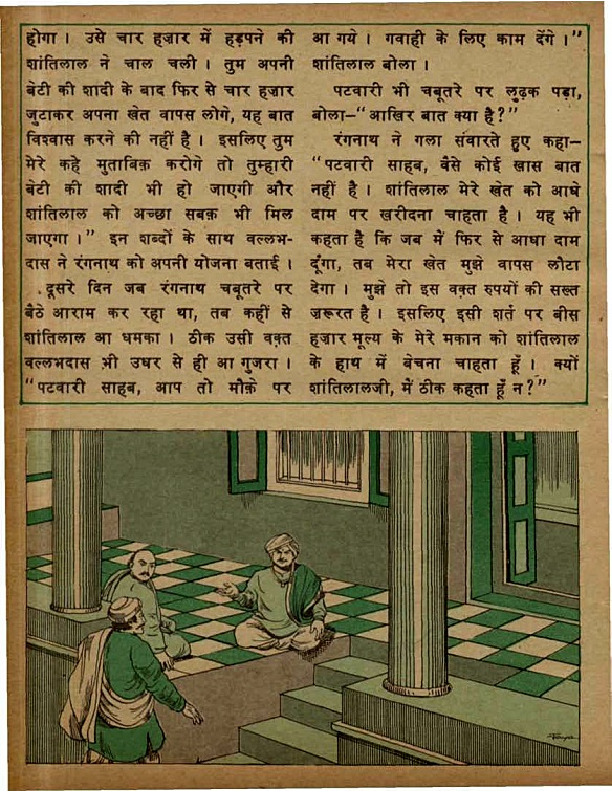 होगा । उसे चार हज़ार में हड़पने की
शांतिलाल ने चाल चली । तुम अपनी
बेटी की शादी के बाद फिर से चार हज़ार
जुटाकर अपना खेत वापस लोगे, यह बात
विश्वास करने की नहीं है । इसलिए तुम
मेरे कहे मुताबिक़ करोगे तो तुम्हारी
बेटी की शादी भी हो जाएगी और
शांतिलाल को अच्छा सबक़ भी मिल
जाएगा ।" इन शब्दों के साथ वल्लभ-
दास ने रंगनाथ को अपनी योजना बताई ।
दूसरे दिन जब रंगनाथ चबूतरे पर
बैठे आराम कर रहा था, तब कहीं से
शांतिलाल आ धमका । ठीक उसी वक़्त
वल्लभदास भी उधर से ही आ गुजरा ।
"पटवारी साहब, आप तो मौक़े पर
आ गये । गवाही के लिए काम देंगे ।"
शांतिलाल बोला ।
पटवारी भी चबूतरे पर लुढ़क पड़ा,
बोला-"आखिर बात क्या है?"
रंगनाथ ने गला संवारते हुए कहा-
"पटवारी साहब, वैसे कोई खास बात
नहीं है । शांतिलाल मेरे खेत को आधे
दाम पर खरीदना चाहता है । यह भी
कहता है कि जब में फिर से आधा दाम
दूंगा, तब मेरा खेत मुझे वापस लौटा
देगा । मुझे तो इस वक्त रुपयों की सख्त
ज़रूरत है । इसलिए इसी शर्त पर बीस
हज़ार मूल्य के मेरे मकान को शांतिलाल
के हाथ में बेचना चाहता हूँ । क्यों
शांतिलालजी, में ठीक कहता हूँ न?"